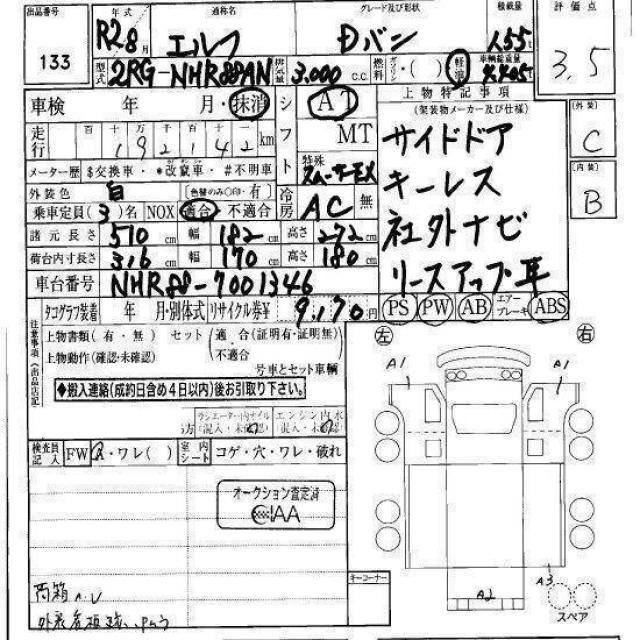 出品番号 133
年式 R2 8月
通称名 エルフ
グレード及び形状 Dバン
積載量 1.55t
評価点 3.5
型式 2RG-NHR88AN
排気量 3.000 c.c.
燃料 ガソリン・( ) 軽油
車輌総重量
車検 年 月・抹消
シフト AT MT
上物特記事項
(架装物メーカー及び仕様)
走行 百 十 万 千 百 十
192142 km
サイドドア
外装 C
メーター歴 $交換車・*改竄車・#不明車
特殊 スムーサーEX
キーレス
内装 B
外装色 白
(色替のみ○印・有)
冷房 AC 無
乗車定員(3)名 NOX 適合 不適合
社外ナビ
諸元長さ 510cm 幅 182cm 高さ 272cm
荷台内寸長さ 316cm 幅 170cm 高さ 180cm
車台番号 NHR88-7001346
リースアップ車
タコグラフ装着 年 月・別体式 リサイクル券¥ 9,170円
PS PW AB エアーブレーキ ABS
注意事項(出品店記
上物書類(有・無) セット(適 合(証明有・証明無)
上物動作(確認・未確認) 不適合
号車とセット車輌
◆搬入連絡(成約日含め4日以内)後お引取り下さい。
左 右
A1 A1
エンジン内水
(混入・未確認)
検査員記入 FW A・ワレ( ) 室内シート コゲ・穴・ワレ・破れ
オークション査定済
CIAA
荷箱 A.U
キーコーナー
A2
A3
スペア